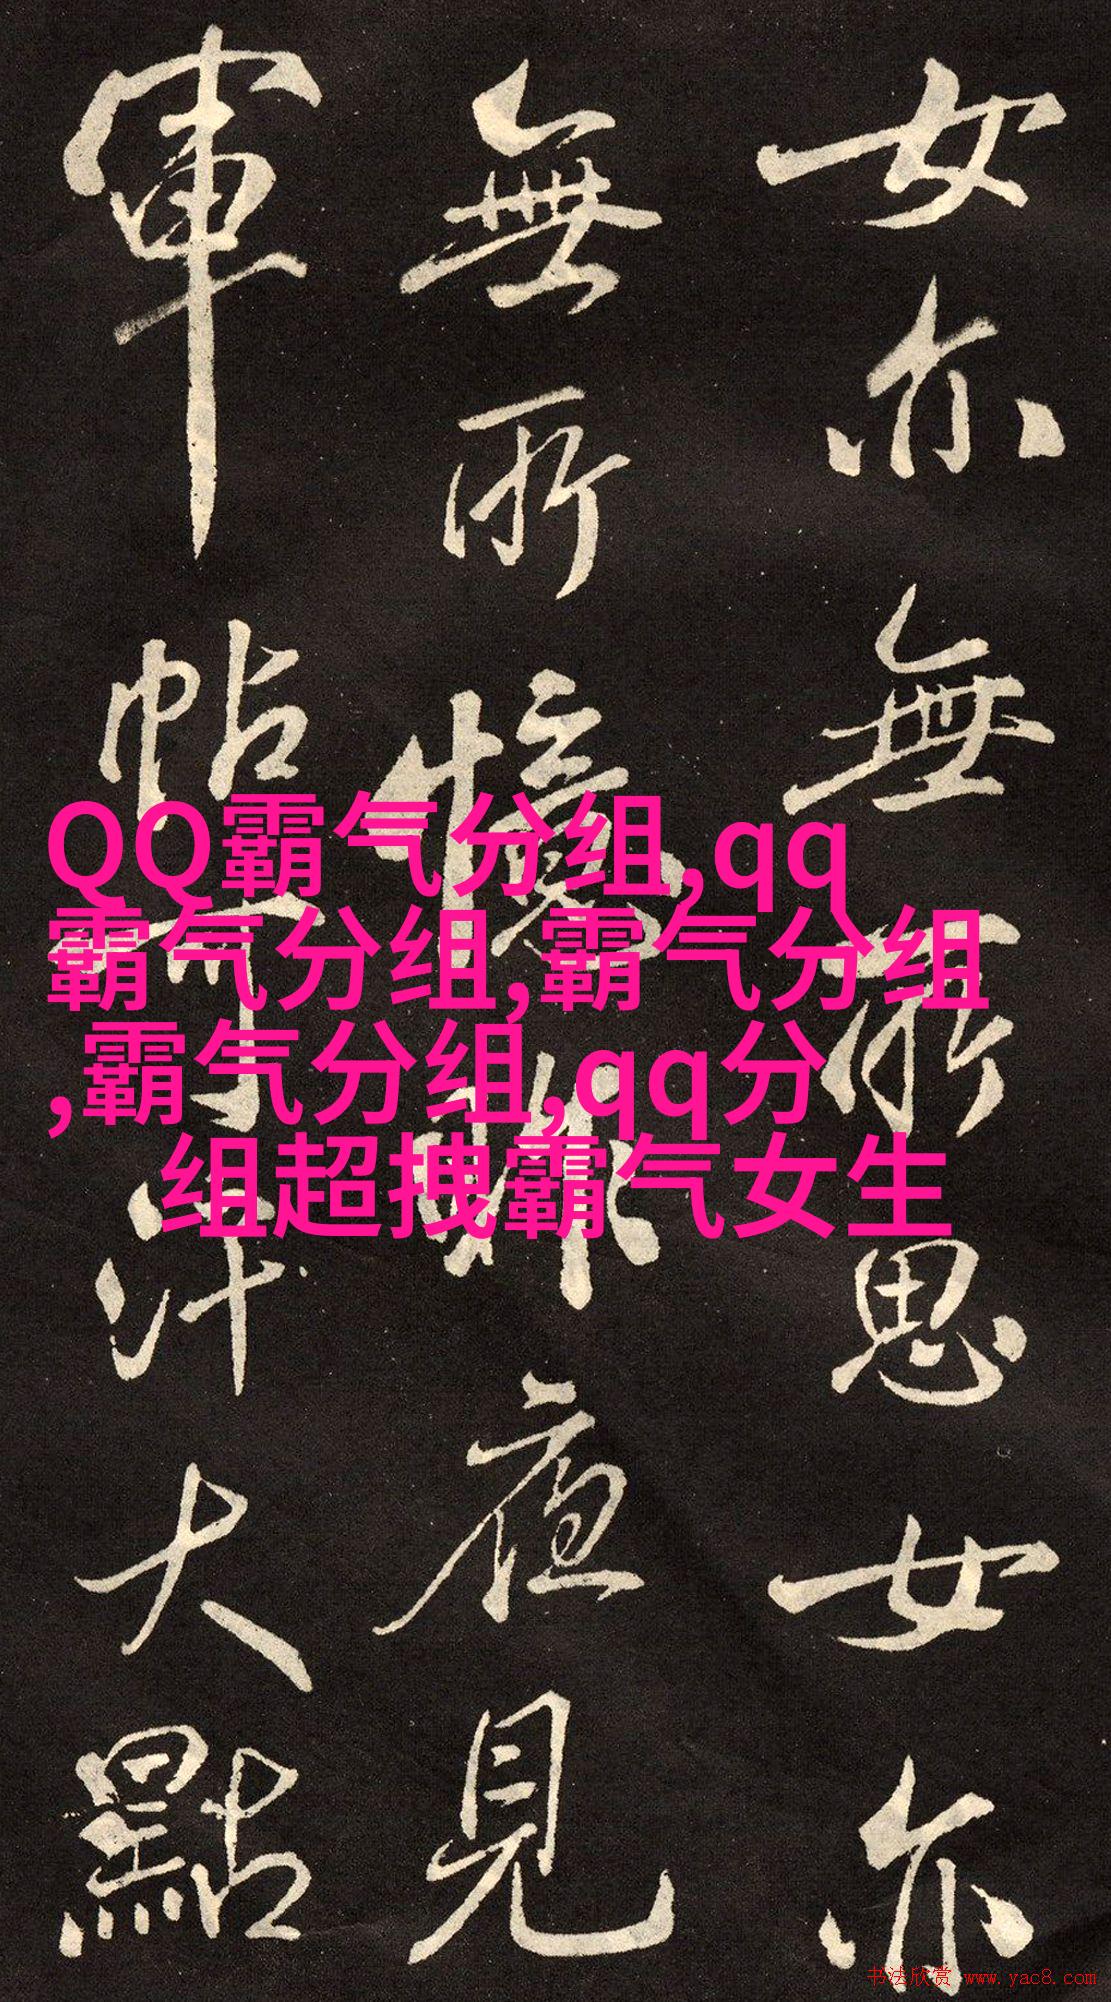 女亦無所思女亦
無所憶昨夜見
軍帖可汗大點
QQ霸气分组,qq
霸气分组,霸气分组
,霸气分组,qq分
组超拽霸气女生
书法欣赏 www.yac8.com